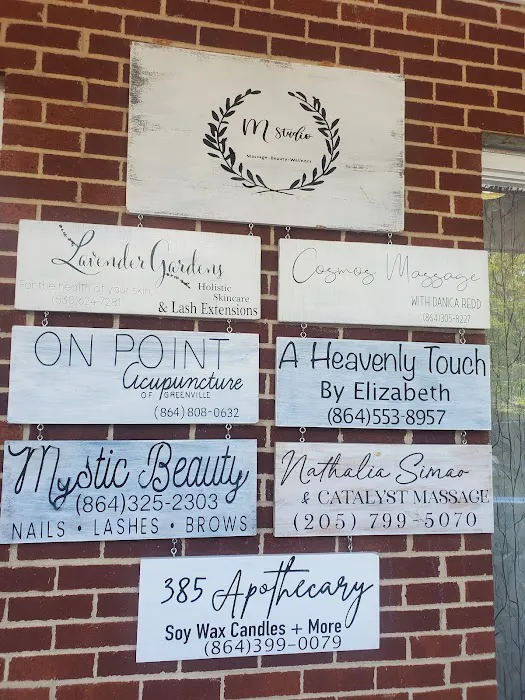 M Studio
Massage-Beauty-Wellness
Lavender Gardens
For the health of your skin
Holistic
Skincare
& Lash Extensions
Cosmos Massage
WITH DANICA REDD
ON POINT
Acupuncture
OF GREENVILLE
(864) 808-0632
A Heavenly Touch
By Elizabeth
(864)553-8957
Mystic Beauty
(864)325-2303
NAILS • LASHES • BROWS
Nathalia Simao
& CATALYST MASSAGE
(205) 799-5070
385 Apothecary
Soy Wax Candles + More
(864)399-0079